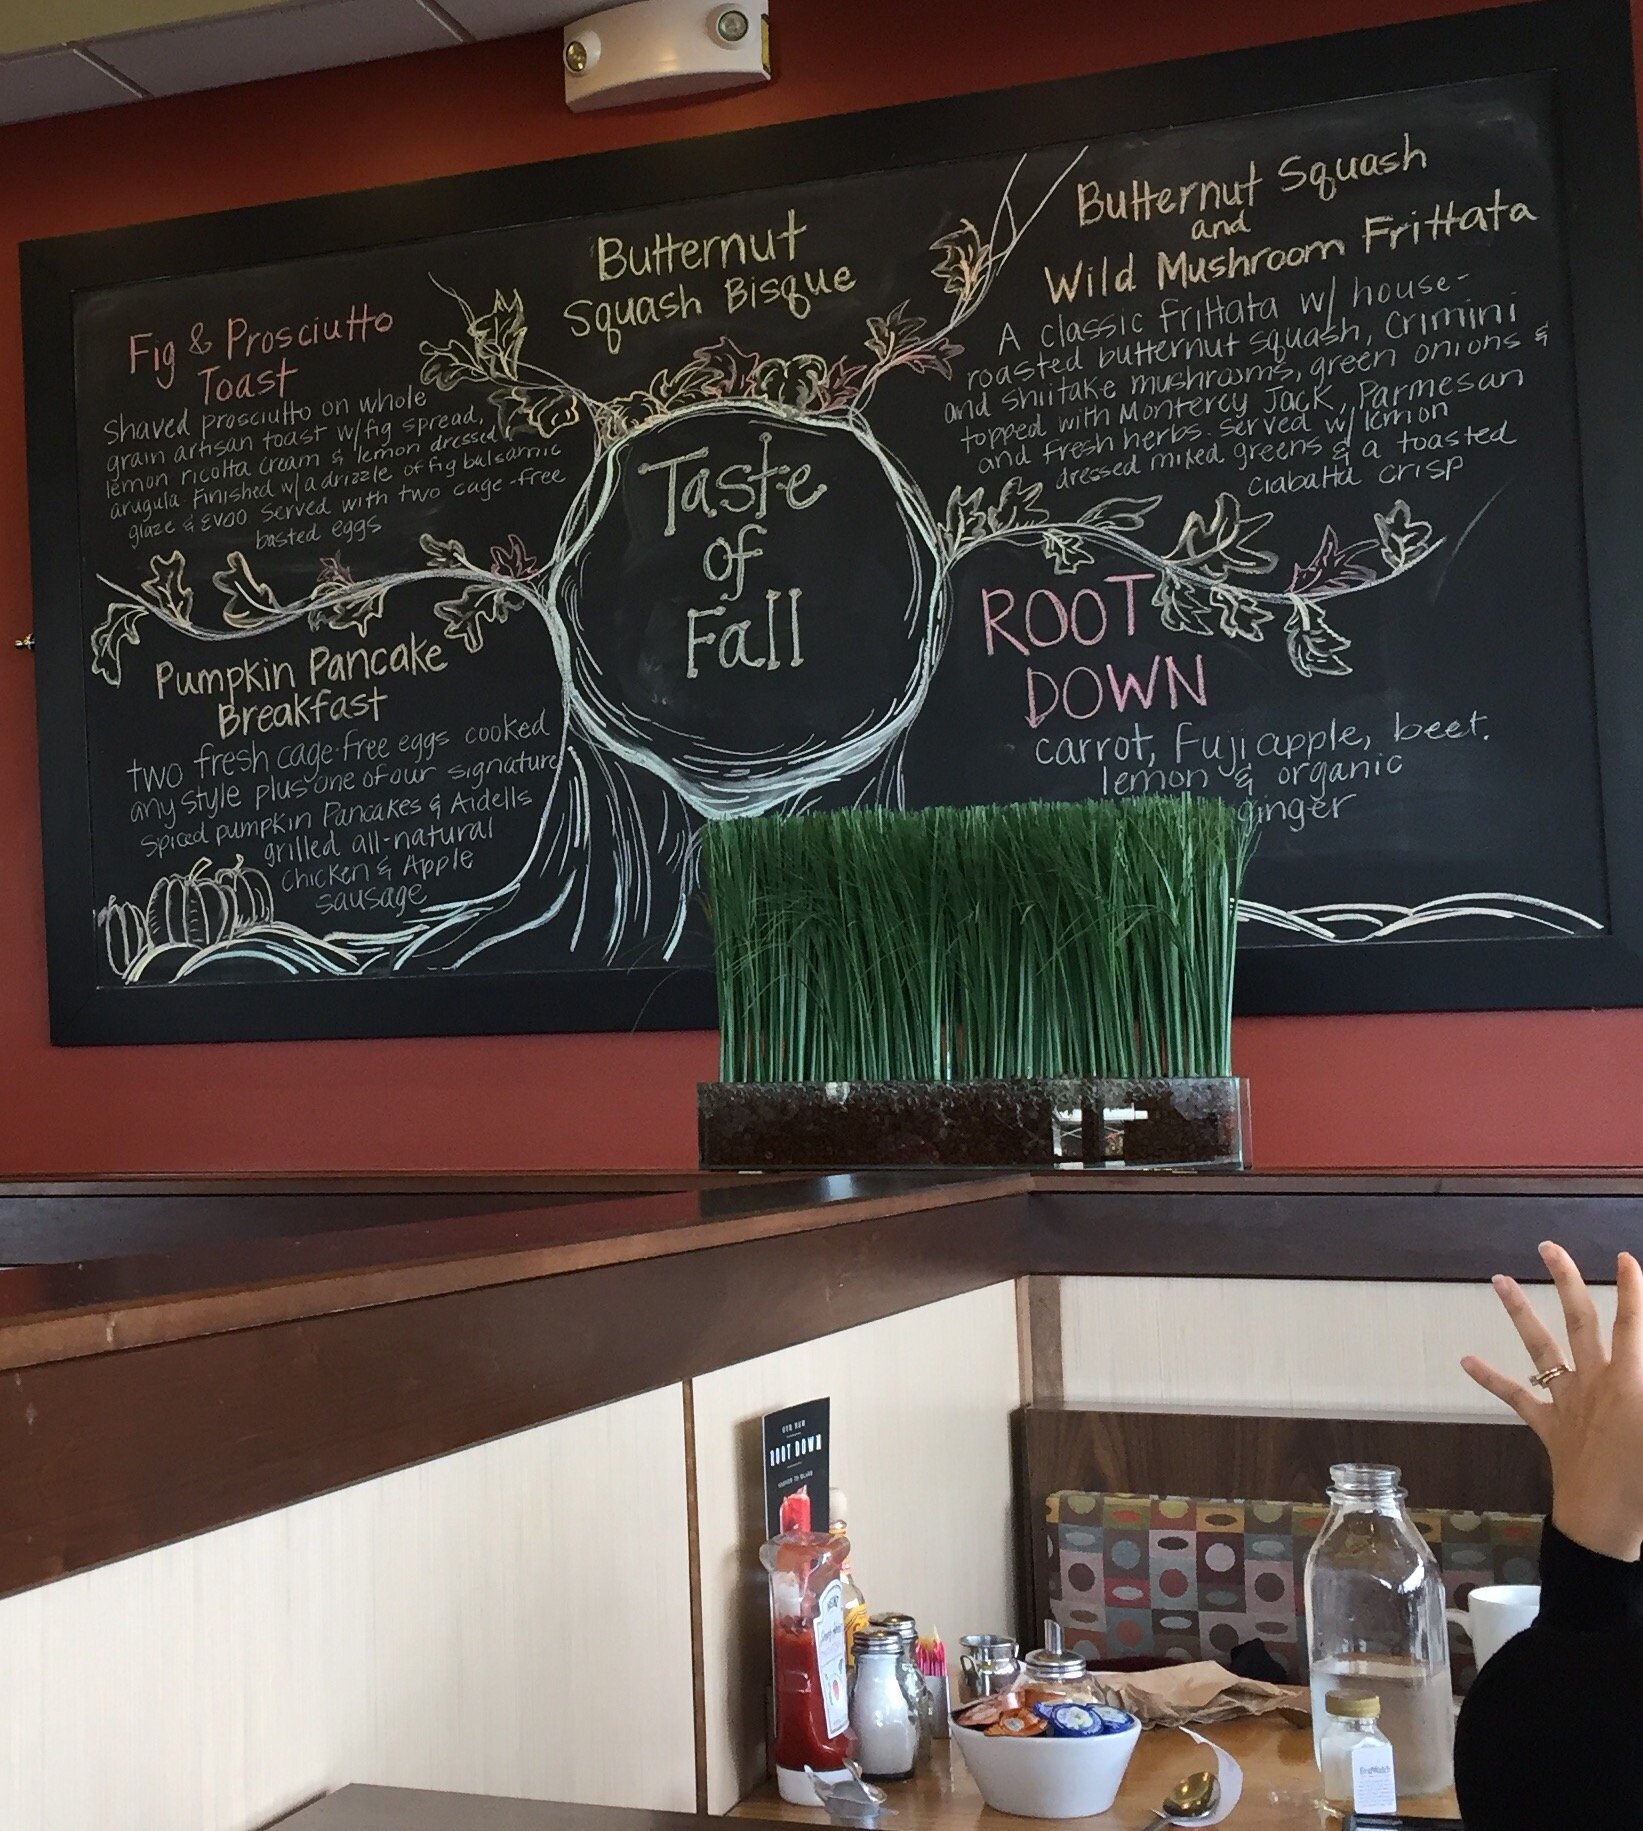 Fig & Prosciutto
Toast
shaved prosciutto on whole
grain artisan toast w/fig spread,
lemon ricotta cream & lemon dressed
arugula. Finished w/a drizzle of fig balsamic
glaze & EVOO served with two cage-free
basted eggs
Pumpkin Pancake
Breakfast
two fresh cage-free eggs cooked
any style plus one of our signature
spiced pumpkin Pancakes & Aidells
grilled all-natural
Chicken & Apple
sausage
Butternut
Squash Bisque
Taste
of
Fall
Butternut Squash
and
Wild Mushroom Frittata
A classic frittata w/ house-
roasted butternut squash, Crimini
and Shiitake mushrooms, green onions &
topped with Monterey Jack, Parmesan
and fresh herbs. served w/ lemon
dressed mixed greens & a toasted
ciabatta crisp
ROOT
DOWN
carrot, Fuji apple, beet.
lemon & organic
ginger
OUR NEW
ROOT DOWN
HEINZ